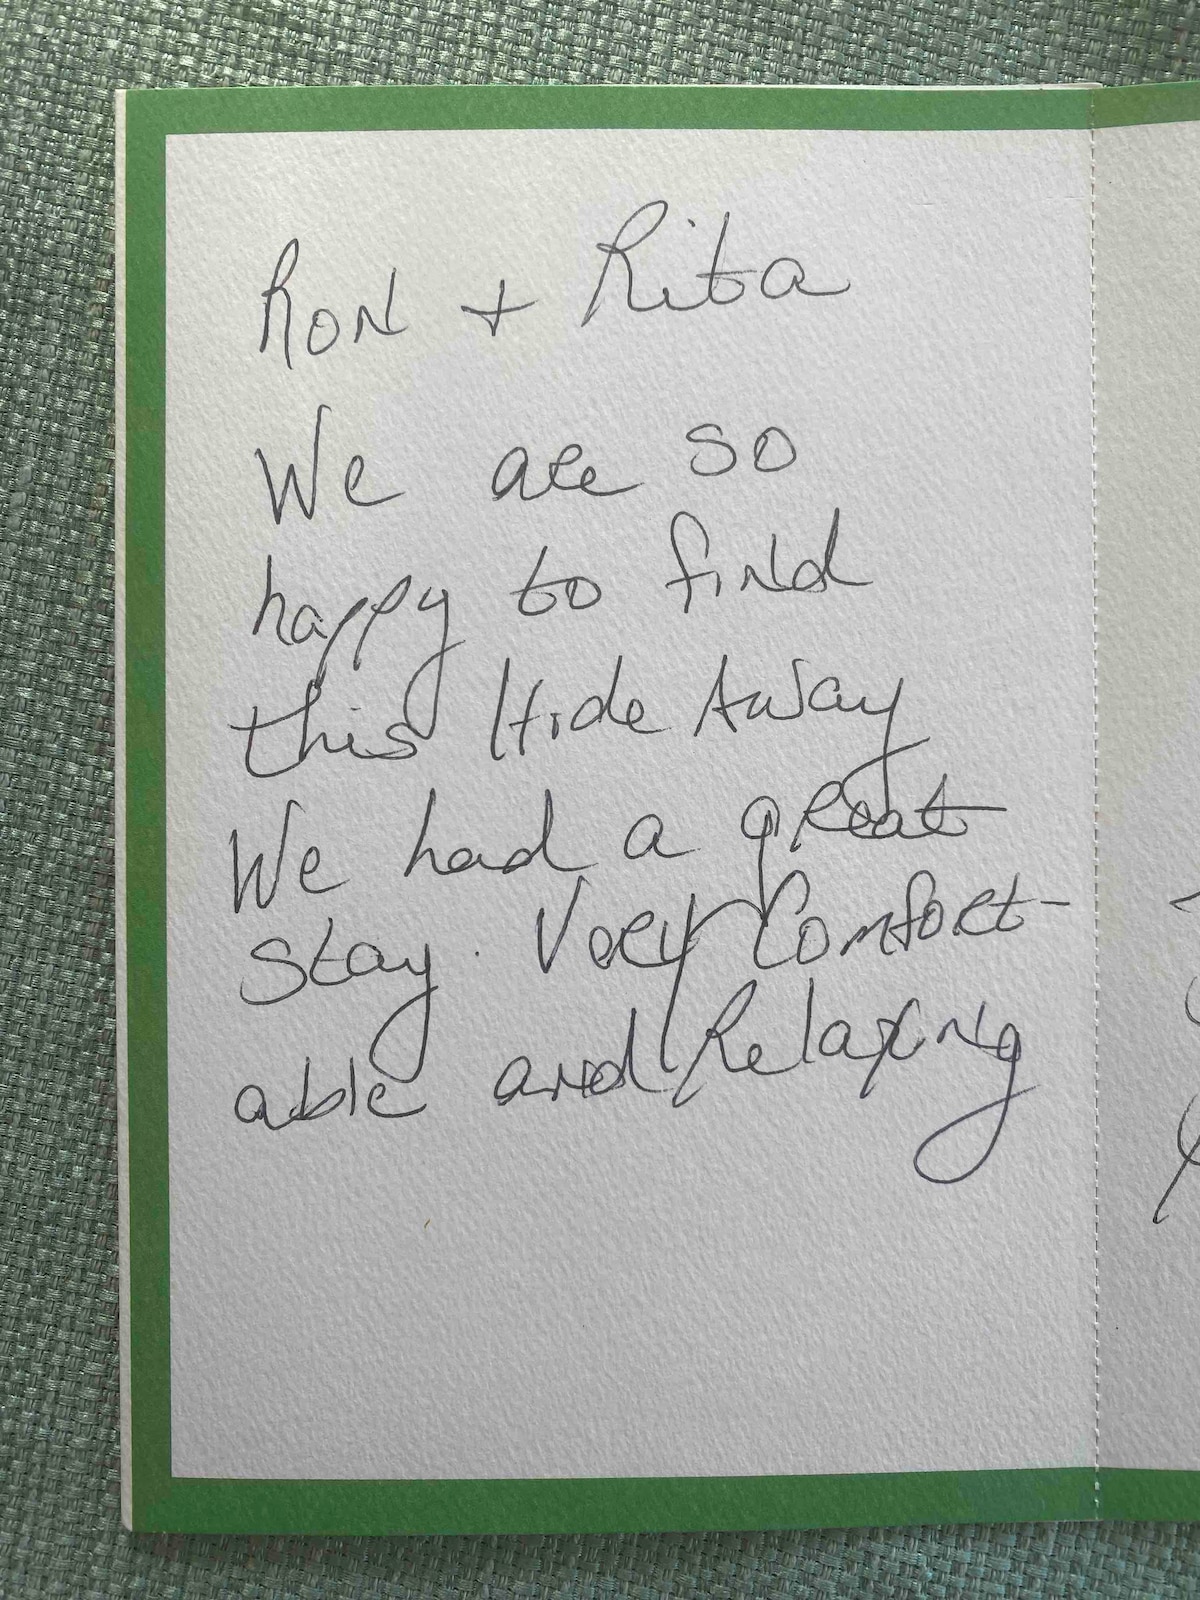 Ron + Rita
We are so
happy to find
this Hide Away
We had a great
stay. Very Comfort-
able and Relaxing